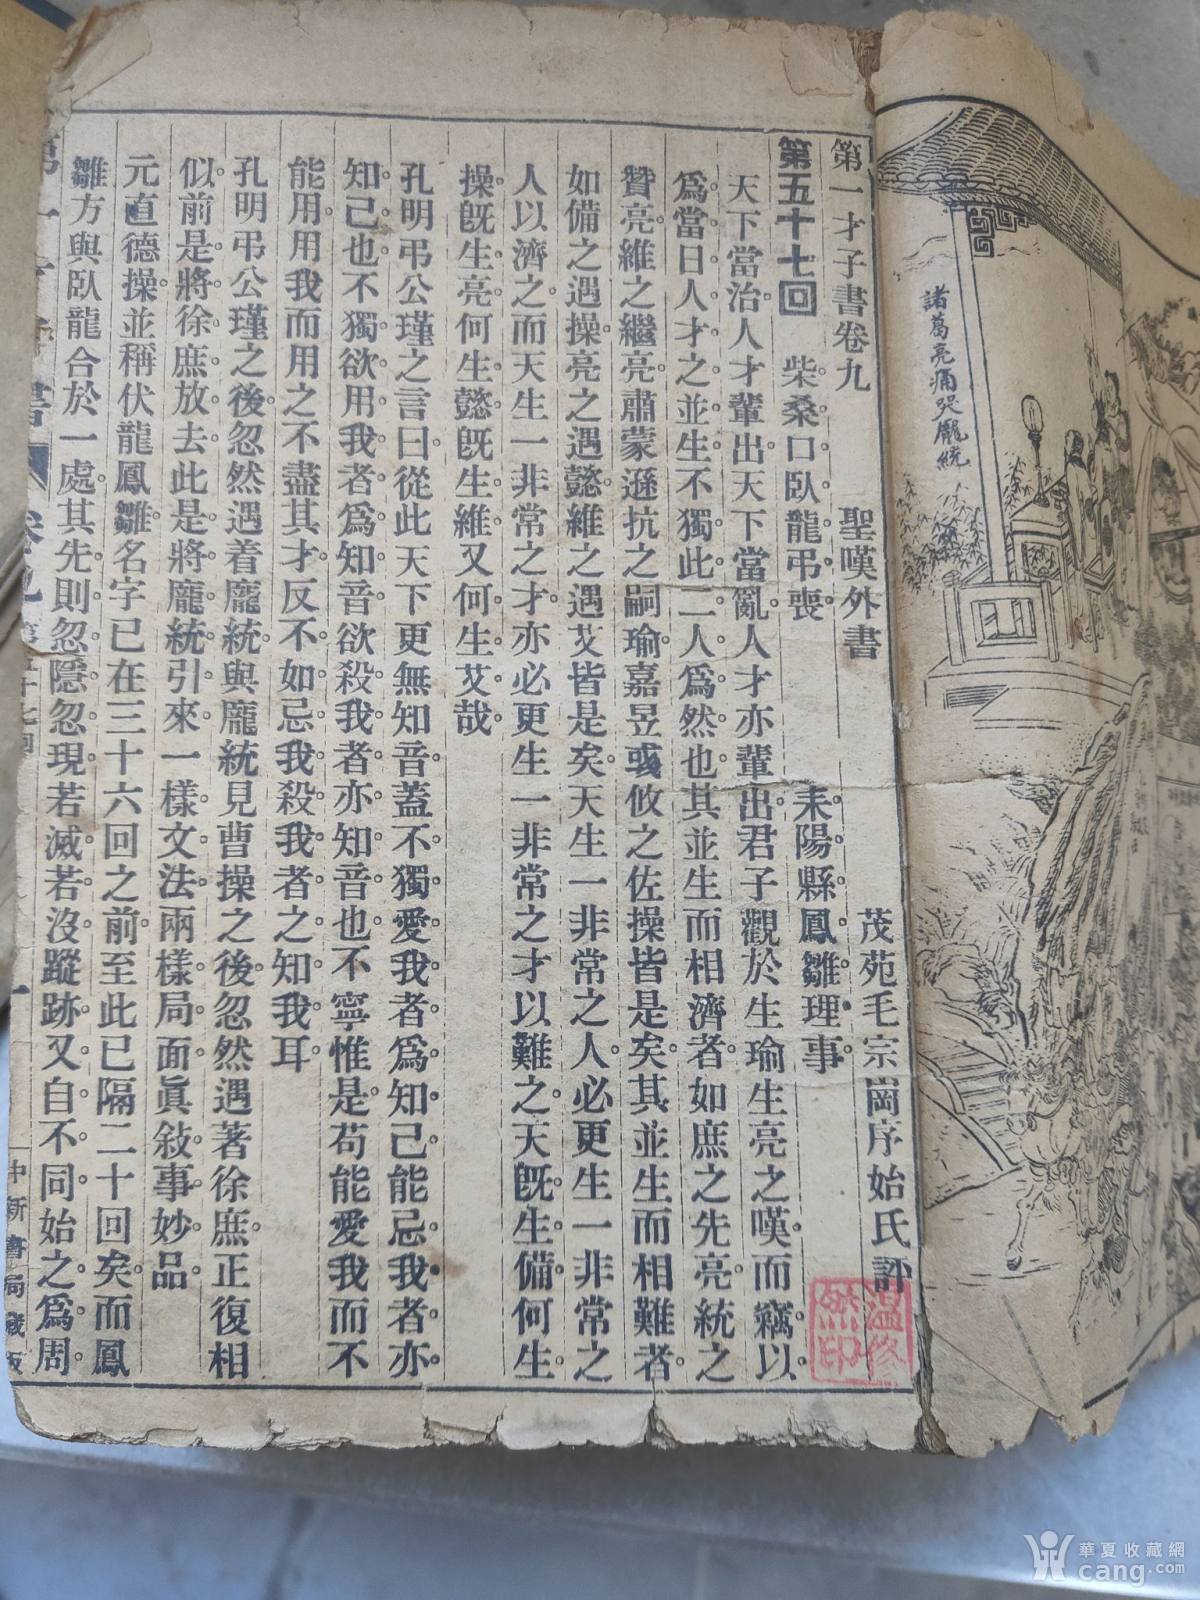 諸葛亮痛哭龐統
第一才子書卷九　聖嘆外書　茂苑毛宗崗序始氏評
第五十七回　柴桑口臥龍弔喪　耒陽縣鳳雛理事
天下當治人才輩出天下當亂人才亦輩出君子觀於生瑜生亮之嘆而竊以
爲當日人才之並生不獨此二人爲然也其並生而相濟者如庶之先亮統之
贊亮維之繼亮肅蒙遜抗之嗣瑜嘉昱彧攸之佐操皆是矣其並生而相難者
如備之遇操亮之遇懿維之遇艾皆是矣天生一非常之人必更生一非常之
人以濟之而天生一非常之才亦必更生一非常之才以難之天旣生備何生
操旣生亮何生懿旣生維又何生艾哉
孔明弔公瑾之言曰從此天下更無知音蓋不獨愛我者爲知己能忌我者亦
知己也不獨欲用我者爲知音欲殺我者亦知音也不寧惟是苟能愛我而不
能用用我而用之不盡其才反不如忌我殺我者之知我耳
孔明弔公瑾之後忽然遇着龐統與龐統見曹操之後忽然遇著徐庶正復相
似前是將徐庶放去此是將龐統引來一樣文法兩樣局面眞敍事妙品
元直德操並稱伏龍鳳雛名字已在三十六回之前至此已隔二十回矣而鳳
雛方與臥龍合於一處其先則忽隱忽現若滅若沒蹤跡又自不同始之爲周
第一才子書　卷九　第五十七回　一　中新書局藏版
溫修
然印
華夏收藏網
cang.com